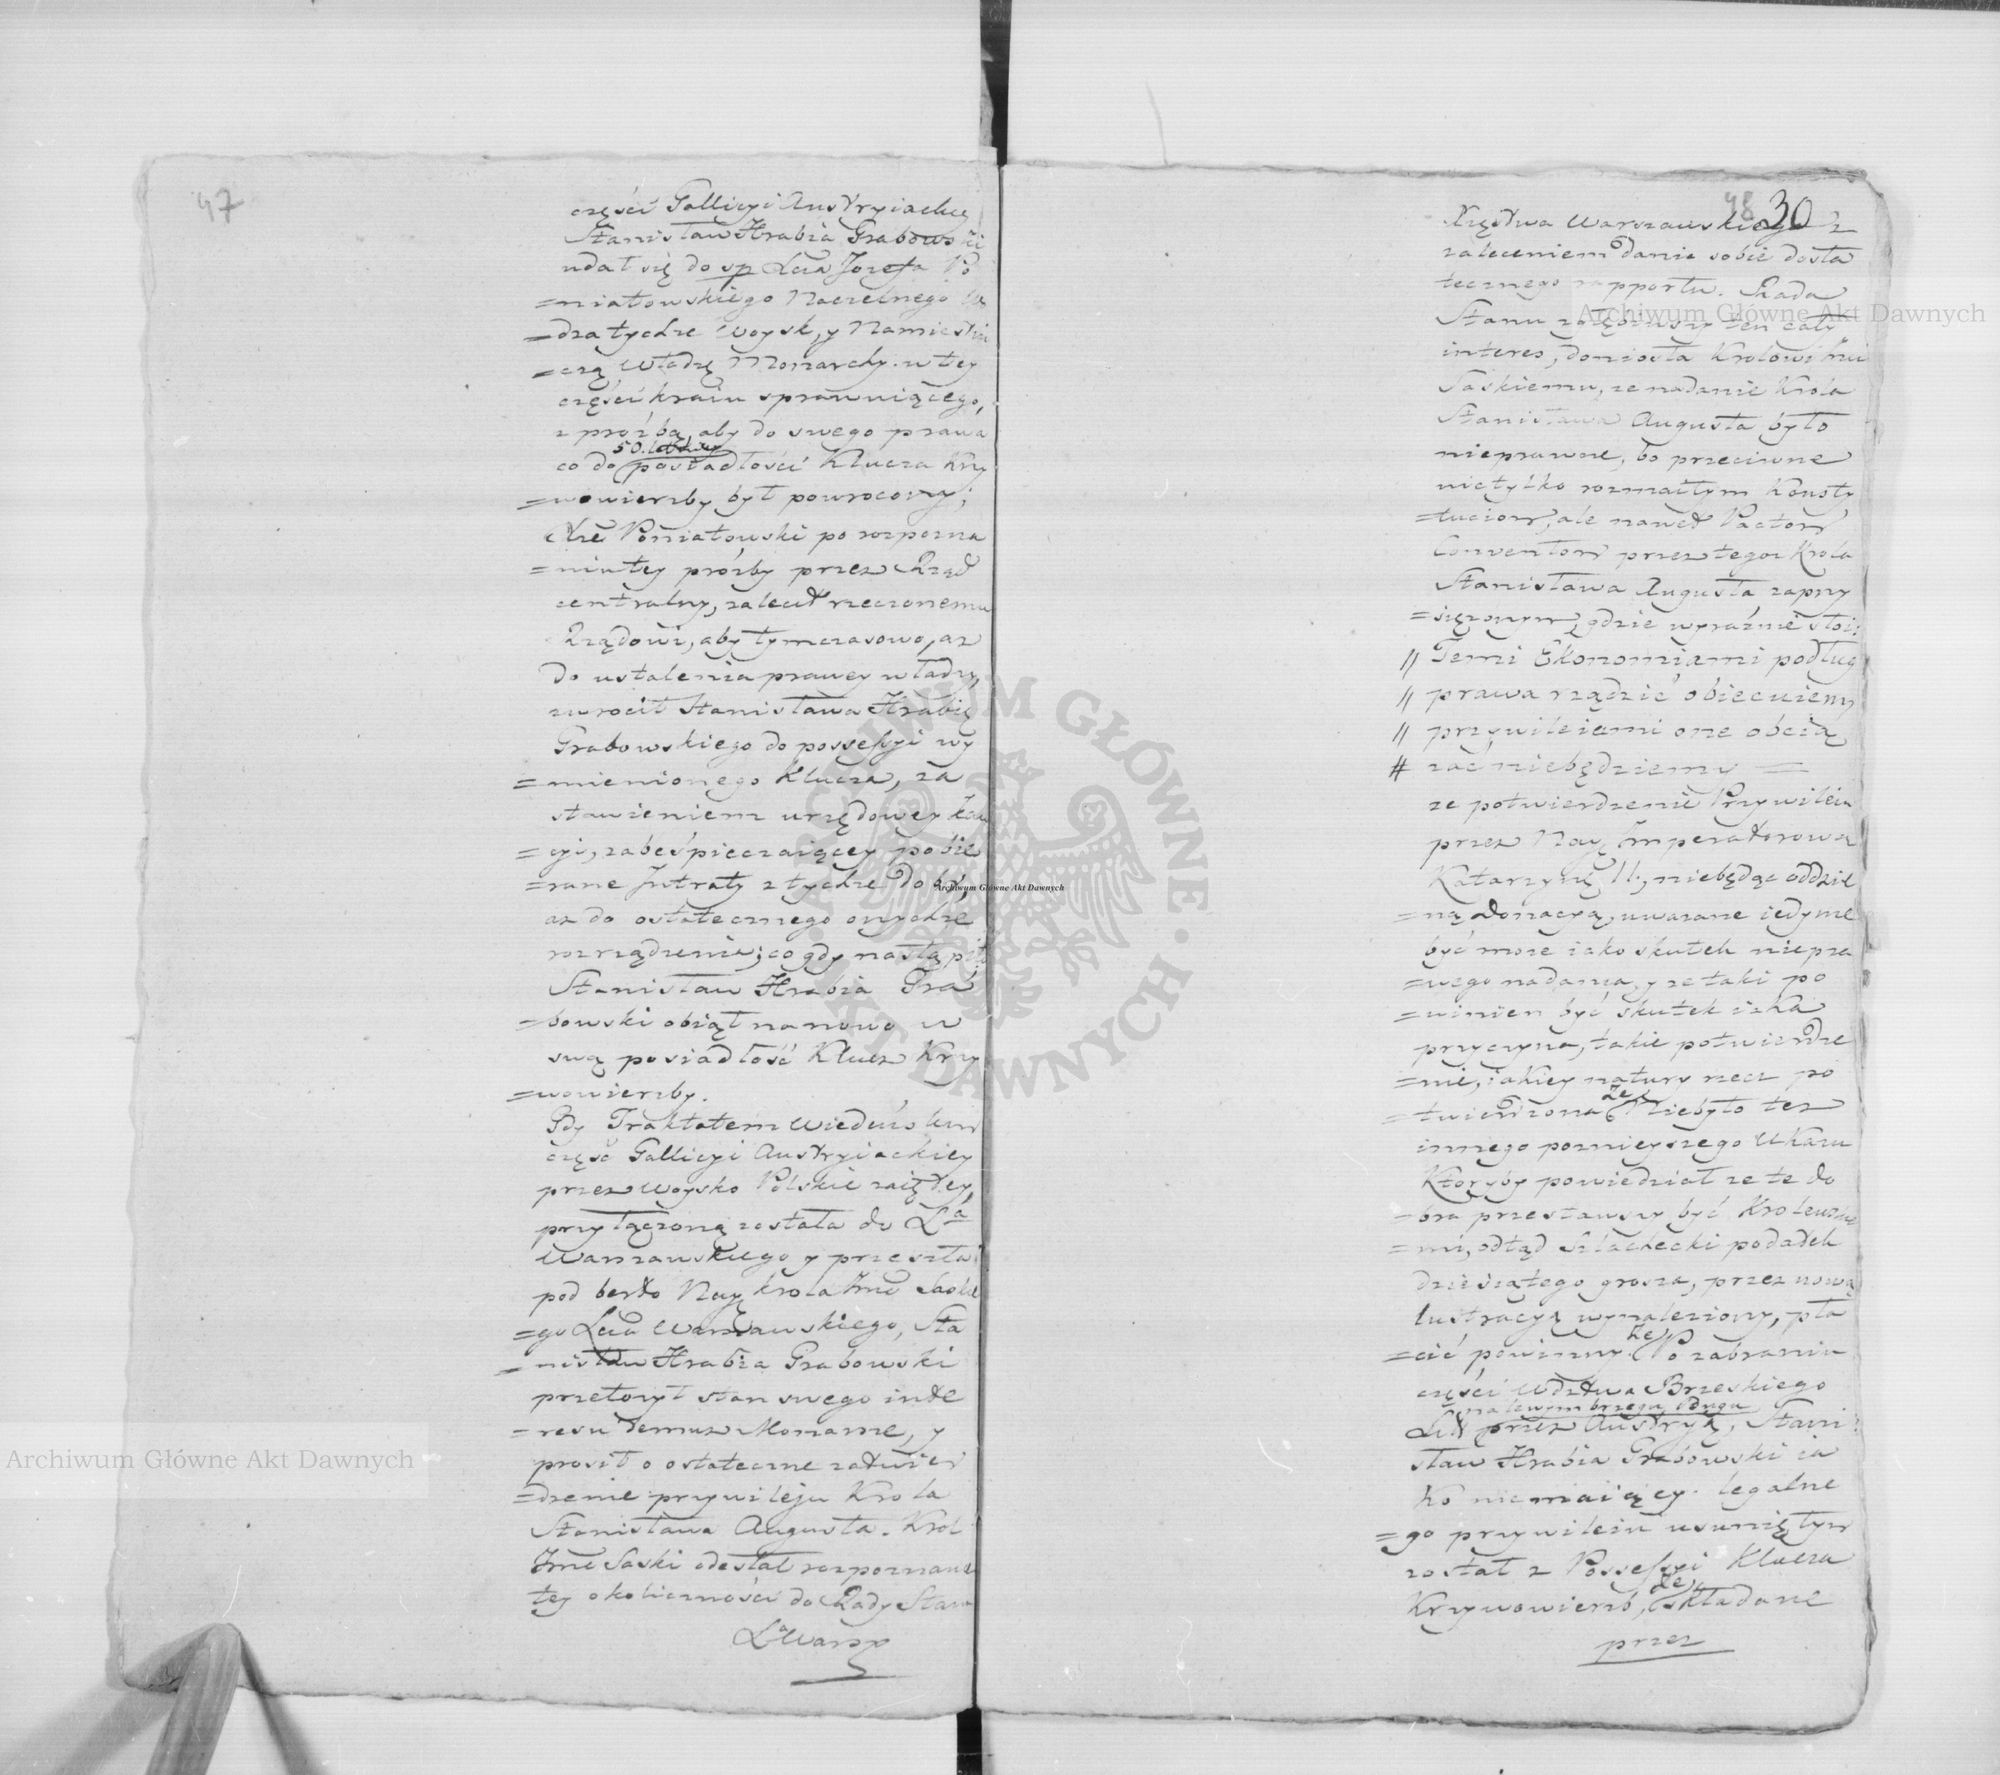 47
części Gallicyi Austryiackiey
Stanisław Hrabia Grabowski
udał się do sp Xcia Jozefa Po
=niatowskiego Naczelnego Wo
=dza tychże Woysk, y Namiestni
=czą Władzę Monarchy w tey
części kraiu sprawuiącego,
z proźbą, aby do swego prawa
50. letniey
co do posiadłości Klucza Krzy
=wowierzby był powrocony;
Xże Poniatowski po rozpozna
=niu tey proźby przez Rząd
centralny, zalecił rzeczonemu
Rządowi, aby tymczasowo, aż
do ustalenia prawey władzy,
zwrocił Stanisława Hrabię
Grabowskiego do possessyi wy
=mienionego Klucza, za
stawieniem urzędowey kau
=cyi, zabespieczaiącey pobie
=rane Jntraty z tychże dobr,
aż do ostatecznego onychże
rozrządzenia; co gdy nastąpiło
Stanisław Hrabia Gra
=bowski obiął na nowo w
swą posiadłość Klucz Krzy
=wowierzby.
Gdy Traktatem Wiedeńskim
część Gallicyi Austryiackiey
przez woysko Polskie zaiętey,
przyłączoną została do Xa
Warszawskiego y przeszła
pod berło Nayj Krola Jmci Saskie
=go Xcia Warszawskiego, Sta
=nisław Hrabia Grabowski
przełożył stan swego inte
=resu temuż Monarsze, y
prosił o ostateczne zatwier
=dzenie przywileju Krola
Stanisława Augusta. Krol
Jmć Saski odesłał rozpoznanie
tey okoliczności do Rady Stanu
Xa Warsz
48 30
Xięstwa Warszawskiego z
zaleceniem dania sobie dosta
tecznego rapportu. Rada
Stanu zgłębiwszy ten cały
interes, doniosła Krolowi Jmci
Saskiemu, że nadanie Krola
Stanisława Augusta było
nieprawne, bo przeciwne
nietylko rozmaitym Konsty
=tuciom, ale nawet Pactom
Conventom przez tegoż Krola
Stanisława Augusta zaprzy
=siężonym, gdzie wyraźnie stoi:
// Temi Ekonomiami podług
// prawa rządzić obiecuiemy
// przywileiami one obcią
// żać niebędziemy =
że potwierdzenie Przywileiu
przez Nayj Imperatorowę
Katarzynę II., niebędąc oddziel
=ną donacyą, uważane iedynie
być może iako skutek niepra
=wego nadania, y że taki po
=winien być skutek iaka
przyczyna, takie potwierdze
=nie, iakiey natury rzecz po
że
=twierdzona. Niebyło też
innego poznieyszego Ukazu
Ktoryby powiedział że te do
=bra przestawszy być Krolewskie
=mi, odtąd Szlachecki podatek
dziesiątego grosza, przez nową
lustracyą wynaleziony, pła
że
=cić powinny. Po zabraniu
części Wdztwa Brzeskiego
na lewym brzegu Bugu
Lit przez Austryą, Stani
sław Hrabia Grabowski ia
ko niemaiący legalne
=go przywileiu usuniętym
został z Possessyi Klucza
że
Krzywowierzb, składane
przez